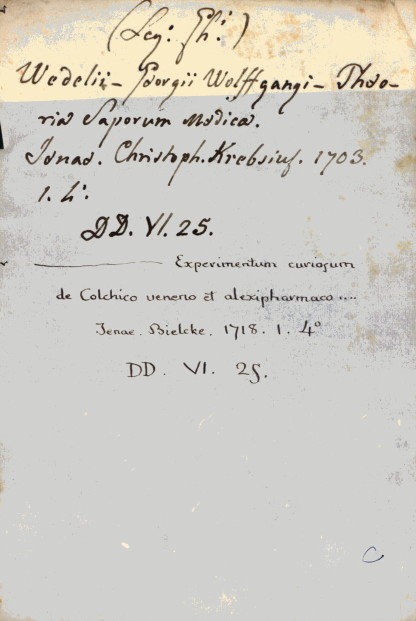 (Leg: Th:)
Wedelii - Georgii Wolffgangi - Theo-
ria Saporum Medica.
Jenae. Christoph. Krebsius. 1703.
1. 4:
DD. VI. 25.
Experimentum curiosum
de Colchico veneno et alexipharmaco ....
Jenae. Bielcke. 1718. 1. 4°
DD. VI. 25.
C